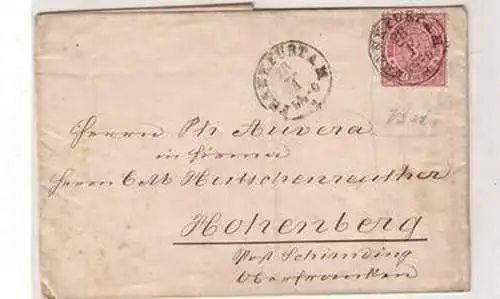 FRANKFURT A. M.
FRANKFURT A. M.
Herrn Ph Auvera
in Firma
Herrn C. M. Hutschenreuther
Hohenberg
Post Schirnding
Oberfranken